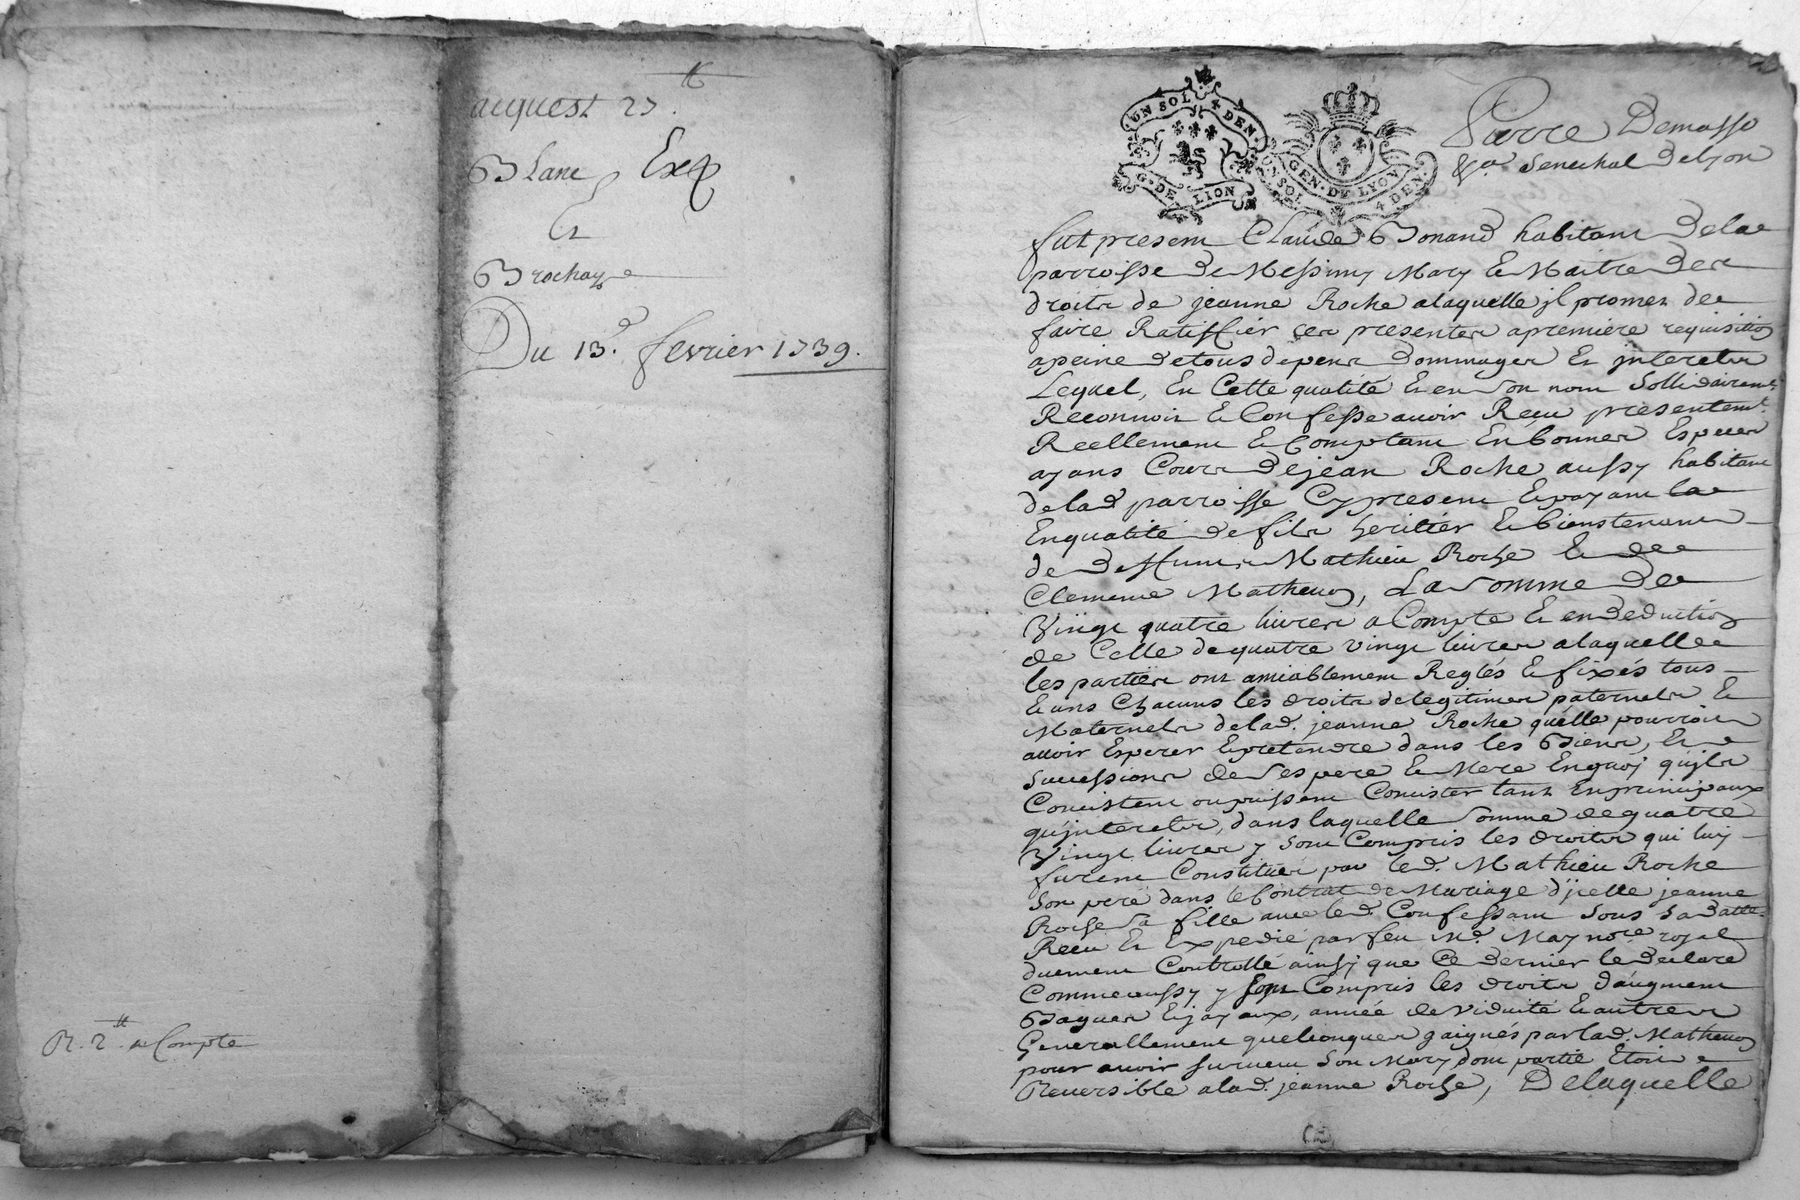 acquest 27.tt
Blanc Exp
Et
Brochay
Du 13.e fevrier 1739.
R. 2.tt a Compte
UN SOL 4 DEN.
G. DE LION
GEN. DE LYON
UN SOL 4 DEN.
Pierre Demasso
Senechal De Lyon
fut present Claude Bonand habitant Dela
parroisse De Messimy Mary & Maitre Des
droits de jeanne Roche alaquelle jl promet de
faire Ratiffier ces presentes apremiere requisition
apeine detous depens dommages Et jnterets
Lequel, En Cette qualité Et en son nom Sollidairemt.
Reconnoit & Confesse avoir Reçu presentemt.
Reellement & Comptant En bonnes Especes
ayans Cours dejean Roche aussy habitant
delad. parroisse Cy present Et payant
Enqualité de fils heritier & bienstenant
de deffunts Mathieu Roche & de
Clemence Mathevon, La Somme De
Vingt quatre livres a Compte & en Deduction
de Celle de quatre vingt livres alaquelle
les parties ont amiablement Reglés & fixés tous
& uns Chacuns les droits delegitimes paternels &
Maternels delad. jeanne Roche quelle pourroit
avoir Esperer & pretendre dans les Biens, Et
Successions de Ses pere & Mere Enquoj quils
Concistent oupuissent Concister tant Enprincipaux
qujnterets, dans laquelle Somme de quatre
Vingt livres y sont Compris les droits qui luy
furent Constitués par led. Mathieu Roche
Son pere dans le Contrat de Mariage d'jcelle jeanne
Roche Sa fille avec led. Confessant Sous Sa datte
Receu Et Expedié par feu Me. May nore. royal
duement Controllé ainsy que Ce dernier le declare
Comme aussy y sont Compris les droits d'augment
Bagues & joyaux, année de viduité & autres
Generallement quelconques gaignés par lad. Mathevon
pour avoir survecu Son Mary dont partie Etoit
Reversible alad. jeanne Roche, Delaquelle